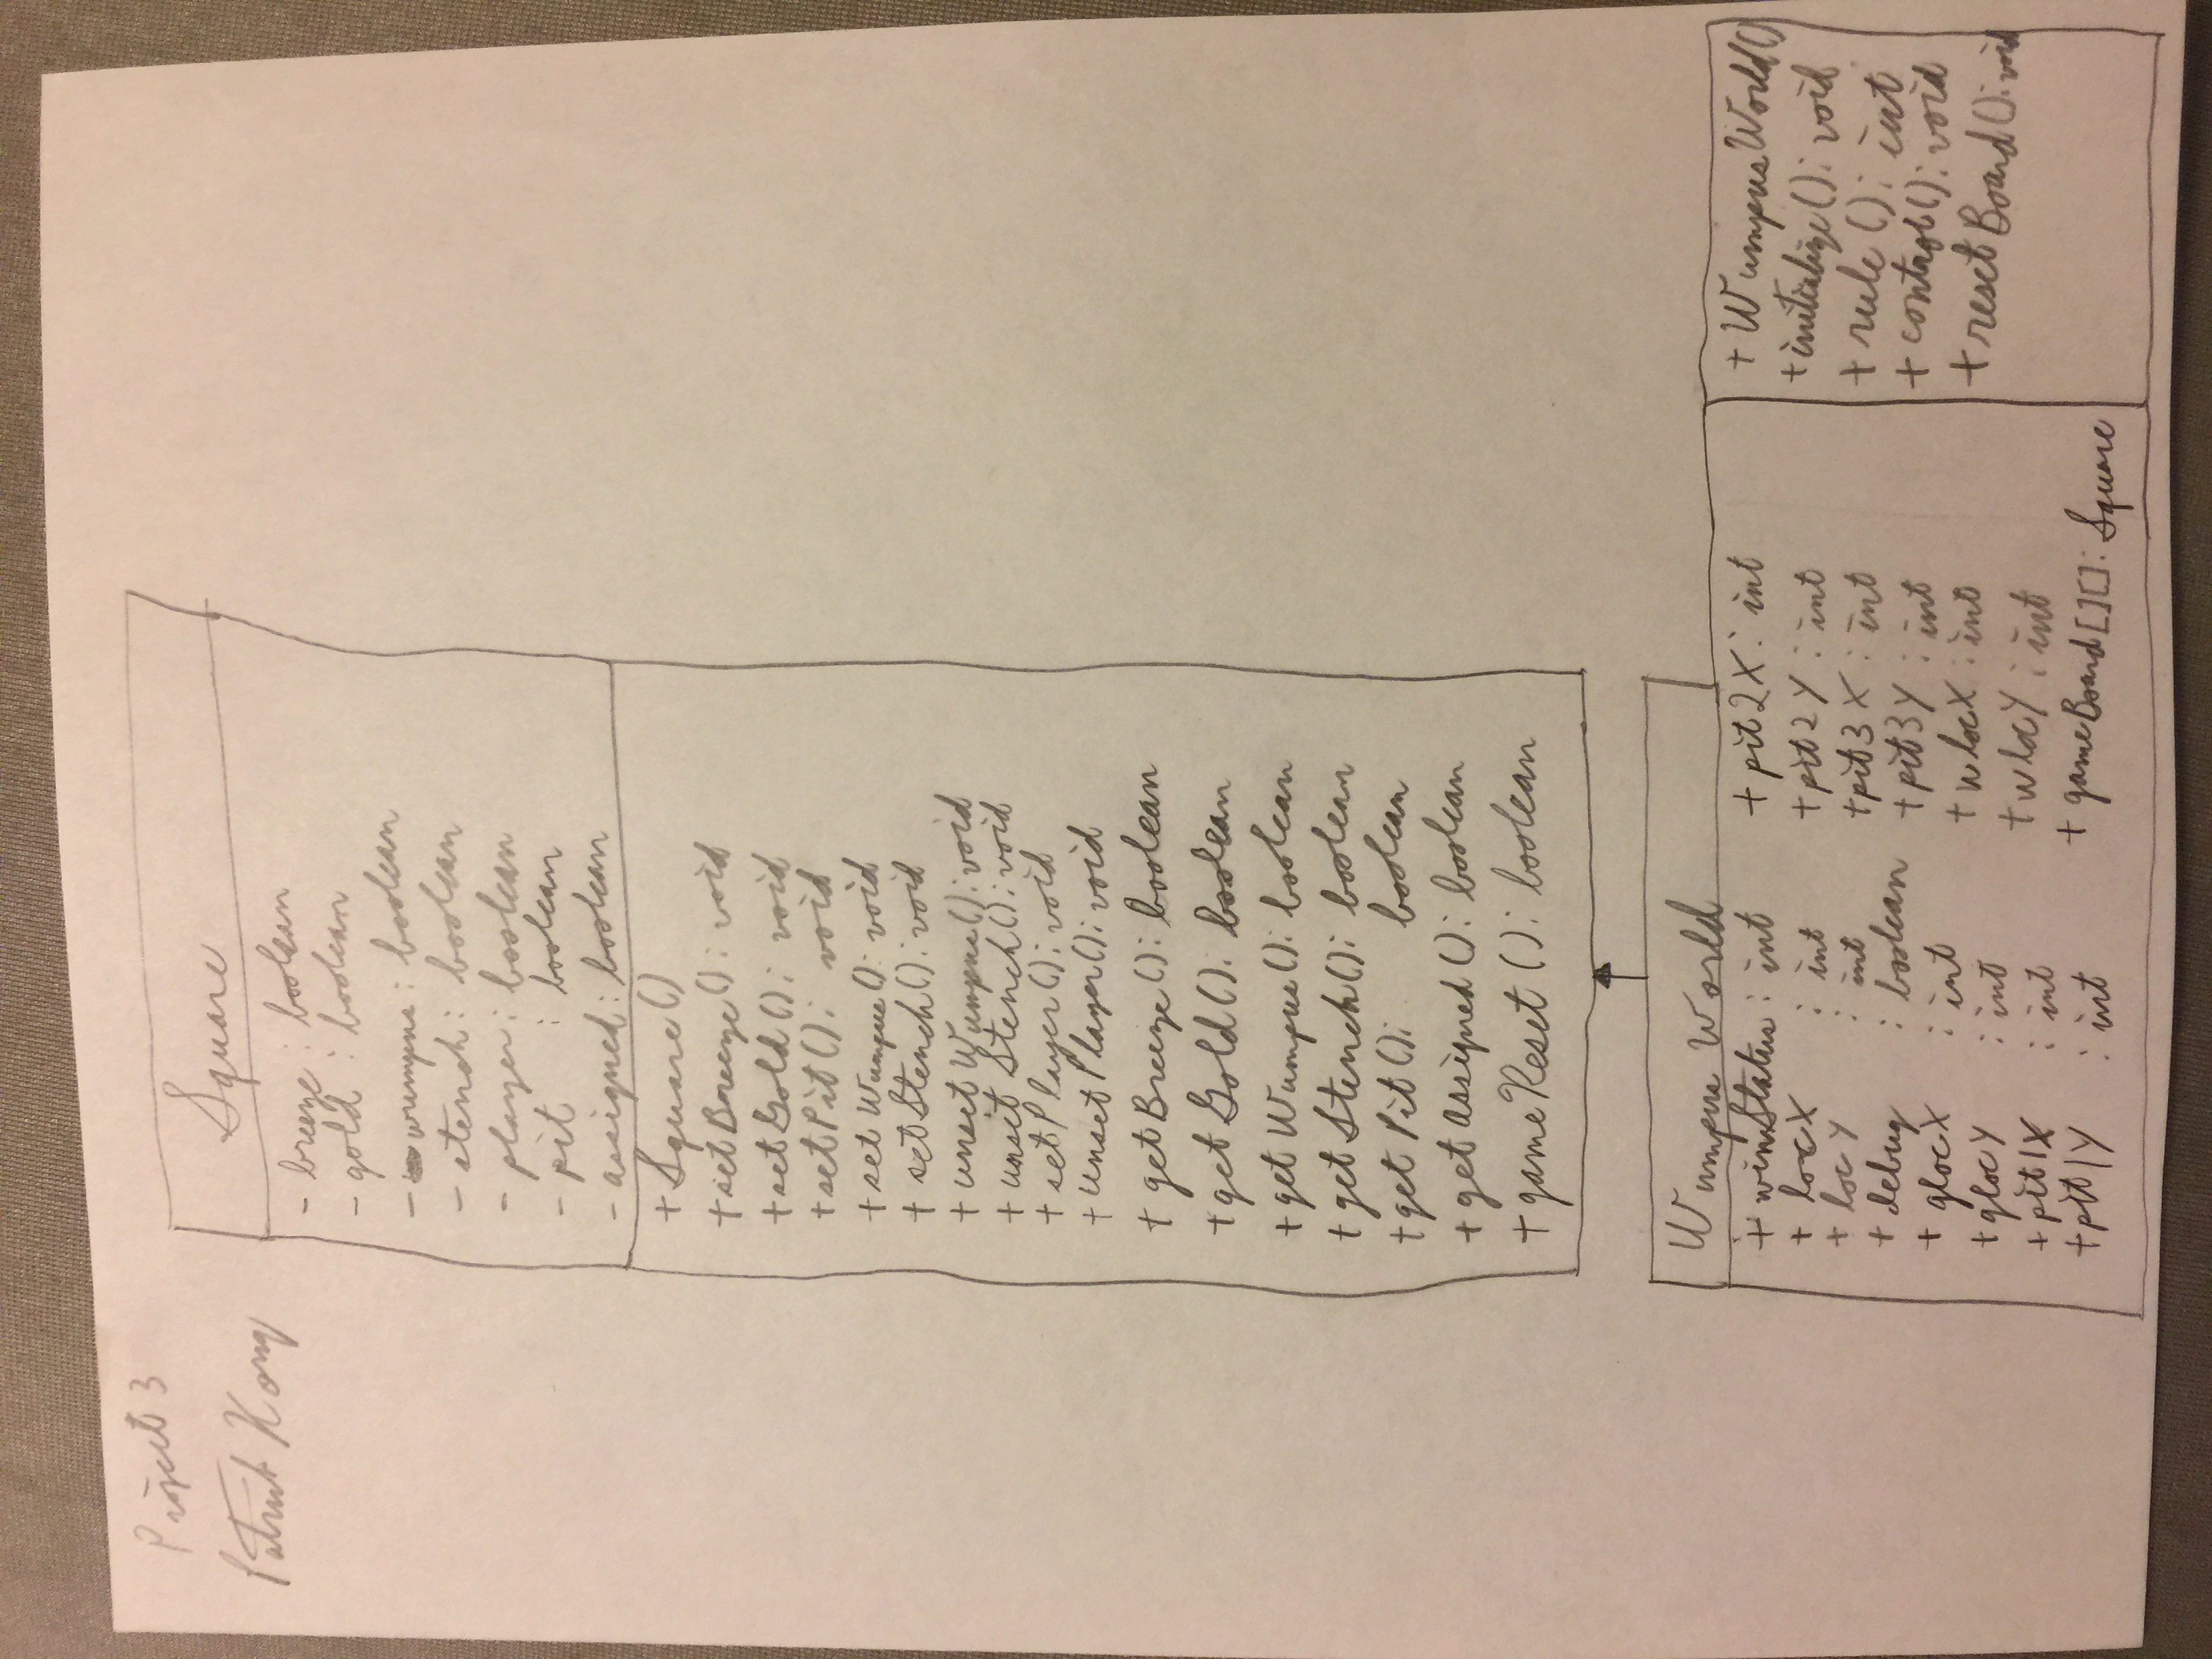 Project 3
Patrick Kong
Square
- breeze : boolean
- gold : boolean
- wumpus : boolean
- stench : boolean
- player : boolean
- pit : boolean
- assigned : boolean
+ Square()
+ setBreeze() : void
+ setGold() : void
+ setPit() : void
+ setWumpus() : void
+ setStench() : void
+ unsetWumpus() : void
+ unsetStench() : void
+ setPlayer() : void
+ unsetPlayer() : void
+ getBreeze() : boolean
+ getGold() : boolean
+ getWumpus() : boolean
+ getStench() : boolean
+ getPit() : boolean
+ getAssigned() : boolean
+ gameReset() : boolean
Wumpus World
+ winStatus : int
+ locX : int
+ locY : int
+ debug : boolean
+ glocX : int
+ glocY : int
+ pit1X : int
+ pit1Y : int
+ pit2X : int
+ pit2Y : int
+ pit3X : int
+ pit3Y : int
+ wlocX : int
+ wlocY : int
+ gameBoard[][] : Square
+ WumpusWorld()
+ initialize() : void
+ rule() : int
+ control() : void
+ resetBoard() : void